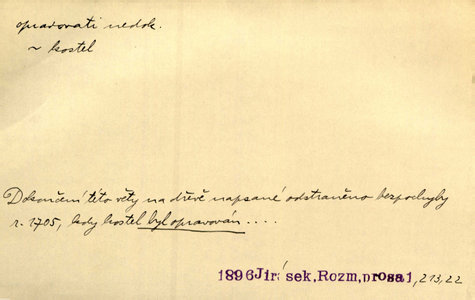 opravovati nedok.
~ kostel
Dokončení této věty na dřevě napsané odstraněno bezpochyby
r. 1705, kdy kostel byl opravován....
1896 Jirásek, Rozm, prosa 1, 213, 22